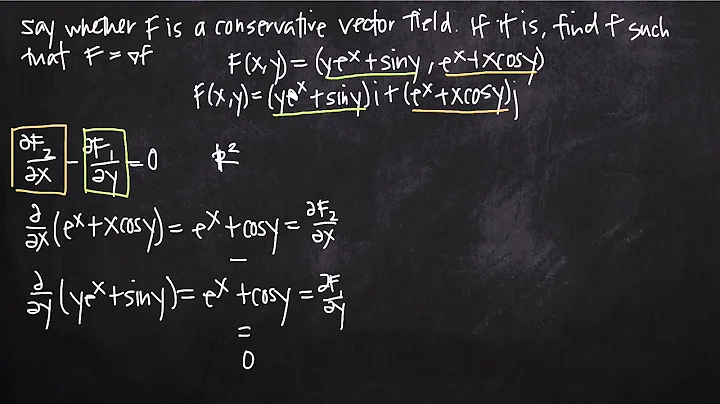 say whether F is a conservative vector field. If it is, find f such
that F = ∇f
F(x,y) = (ye^x + siny, e^x + xcosy)
F(x,y) = (ye^x + siny)i + (e^x + xcosy)j
∂F₂/∂x − ∂F₁/∂y = 0 R²
∂/∂x (e^x + xcosy) = e^x + cosy = ∂F₂/∂x
−
∂/∂y (ye^x + siny) = e^x + cosy = ∂F₁/∂y
=
0